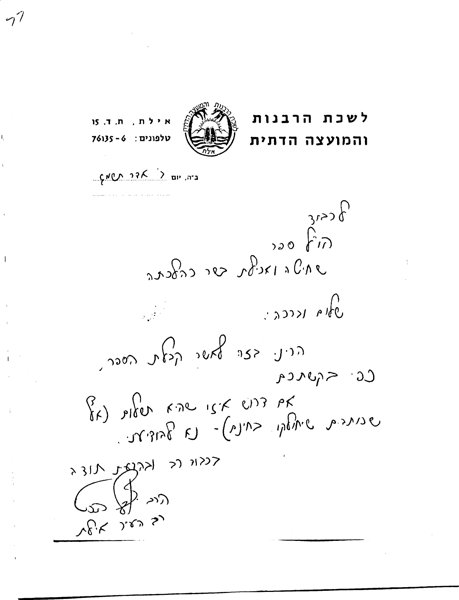 לשכת הרבנות
והמועצה הדתית
אילת, ת.ד. 15
טלפונים: 76135-6
ב״ה, יום ו' אדר תשמז
לכבוד
הו״ל ספר
שחיטה ואכילת בשר כהלכתה
שלום וברכה.
הריני בזה לאשר קבלת הספר,
כפי בקשתכם
אם דרוש איזו שהיא תשלום
שיחולקו בחינם) - נא להודיעני.
בכבוד רב ובהוקרת תודה
הרב
רב העיר אילת